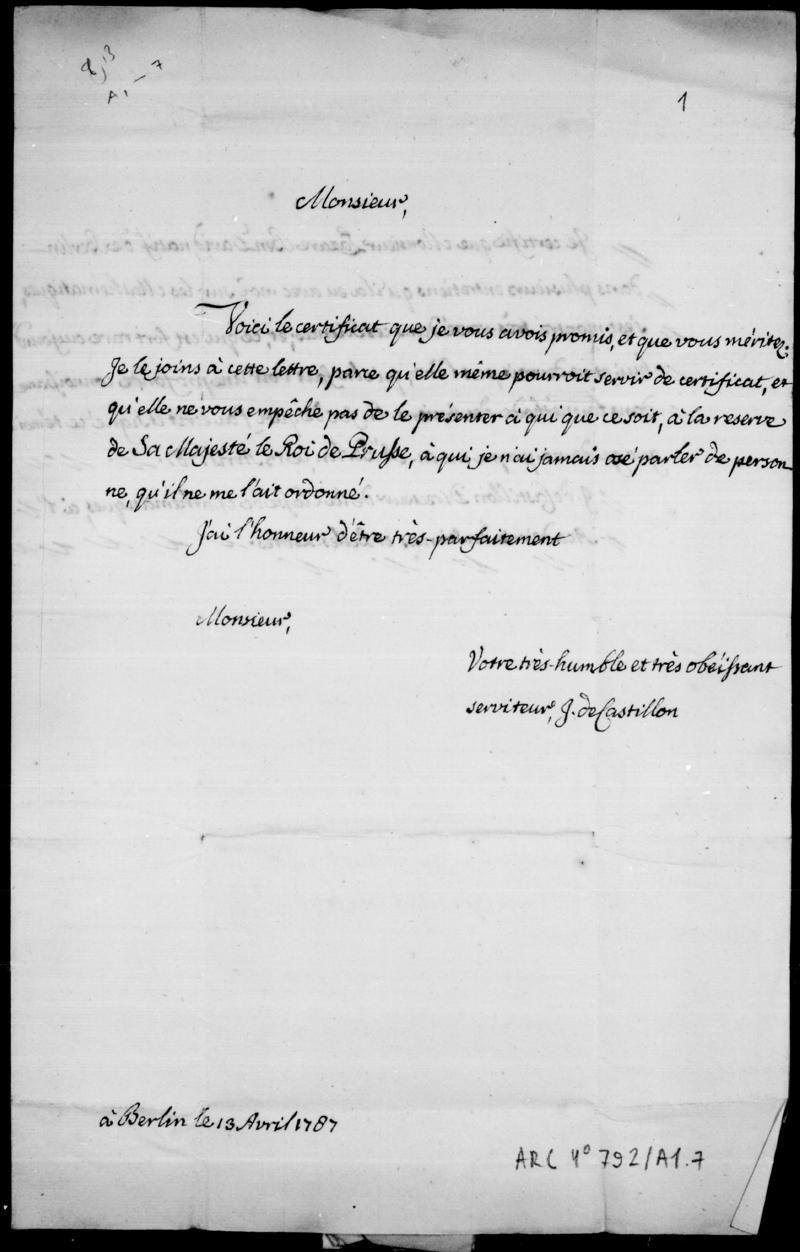 A1-7
1
Monsieur,
Voici le certificat que je vous avois promis, et que vous méritez.
Je le joins à cette lettre, parce qu'elle même pourroit servir de certificat, et
qu'elle ne vous empêche pas de le présenter à qui que ce soit, à la reserve
de Sa Majesté le Roi de Prusse, à qui je n'ai jamais osé parler de person
ne, qu'il ne me l'ait ordonné.
J'ai l'honneur d'être très-parfaitement
Monsieur,
Votre très-humble et très obéissant
serviteur, J. de Castillon
à Berlin le 13 Avril 1787
ARC 4° 792/A1.7